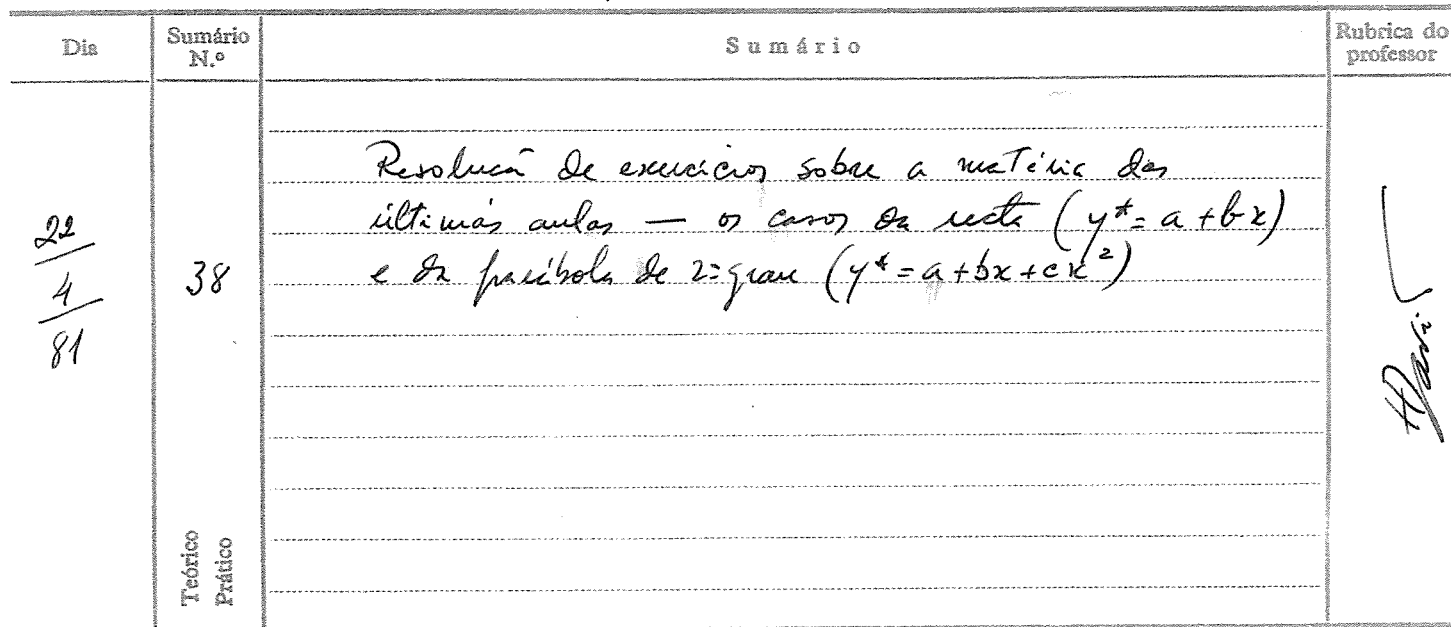 Dia
Sumário N.º
Sumário
Rubrica do professor
22
4
81
38
Resolução de exercícios sobre a matéria das
últimas aulas — os casos da recta (y* = a + bx)
e da parábola de 2º grau (y* = a + bx + cx²)
Teórico
Prático